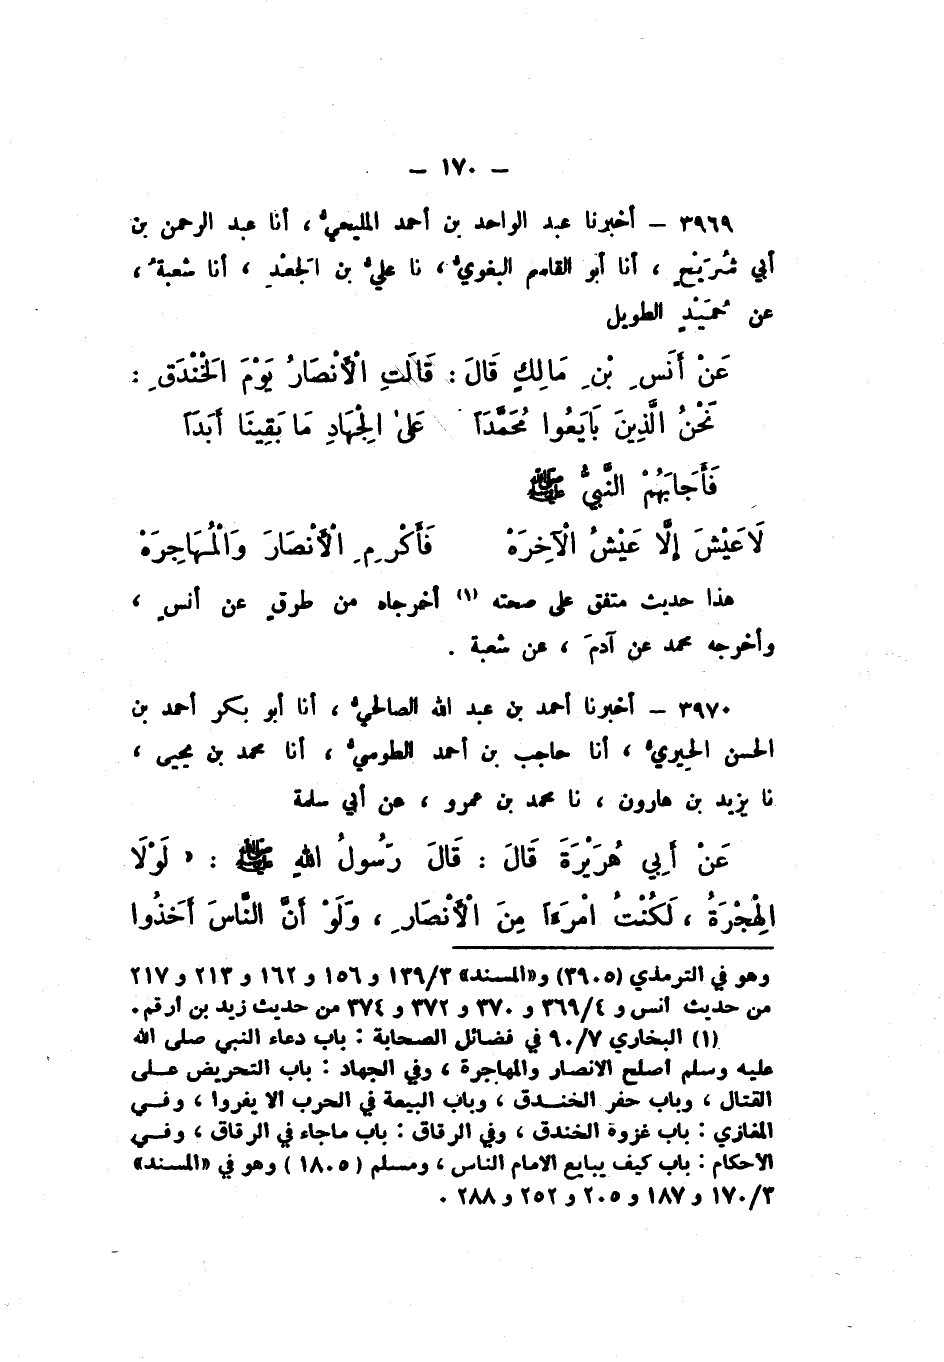 – ١٧٠ –
٣٩٦٩ – أخبرنا عبد الواحد بن أحمد المليحيُّ ، أنا عبد الرحمن بن
أبي شُرَيْحٍ ، أنا أبو القاسم البغويُّ ، نا عليُّ بن الجَعْدِ ، أنا شعبةُ ،
عن حُمَيْدٍ الطويل
عَنْ أَنَسِ بْنِ مَالِكٍ قَالَ : قَالَتِ الْأَنْصَارُ يَوْمَ الخَنْدَقِ :
نَحْنُ الَّذِينَ بَايَعُوا مُحَمَّدَاً عَلىٰ الجِهَادِ مَا بَقِينَا أَبَدَاً
فَأَجَابَهُمْ النَّبِيُّ ﷺ
لَاعَيْشَ إِلَّا عَيْشُ الْآخِرَهْ فَأَكْرِمِ الْأَنْصَارَ وَالْمُهَاجِرَهْ
هذا حديث متفق على صحته (١) أخرجاه من طرقٍ عن أنسٍ ،
وأخرجه محمد عن آدمَ ، عن شعبة .
٣٩٧٠ – أخبرنا أحمد بن عبد الله الصالحيُّ ، أنا أبو بكر أحمد بن
الحسن الحِيريُّ ، أنا حاجب بن أحمد الطوسيُّ ، أنا محمد بن يحيى ،
نا يزيد بن هارون ، نا محمد بن عمرو ، عن أبي سلمة
عَنْ أَبِي هُرَيْرَةَ قَالَ : قَالَ رَسُولُ اللهِ ﷺ : « لَوْلَا
الهِجْرَةُ ، لَكُنْتُ امْرَءَاً مِنَ الْأَنْصَارِ ، وَلَوْ أَنَّ النَّاسَ أَخَذُوا
وهو في الترمذي (٣٩٠٥) و«المسند» ١٣٩/٣ و ١٥٦ و ١٦٢ و ٢١٣ و ٢١٧
من حديث أنس و ٣٦٩/٤ و ٣٧٠ و ٣٧٢ و ٣٧٤ من حديث زيد بن أرقم .
(١) البخاري ٩٠/٧ في فضائل الصحابة : باب دعاء النبي صلى الله
عليه وسلم أصلح الانصار والمهاجرة ، وفي الجهاد : باب التحريض عـلى
القتال ، وباب حفر الخنـدق ، وباب البيعة في الحرب الا يفروا ، وفـي
المغازي : باب غزوة الخندق ، وفي الرقاق : باب ماجاء في الرقاق ، وفـي
الاحكام : باب كيف يبايع الامام الناس ، ومسلم (١٨٠٥) وهو في «المسند»
١٧٠/٣ و ١٨٧ و ٢٠٥ و ٢٥٢ و ٢٨٨ .